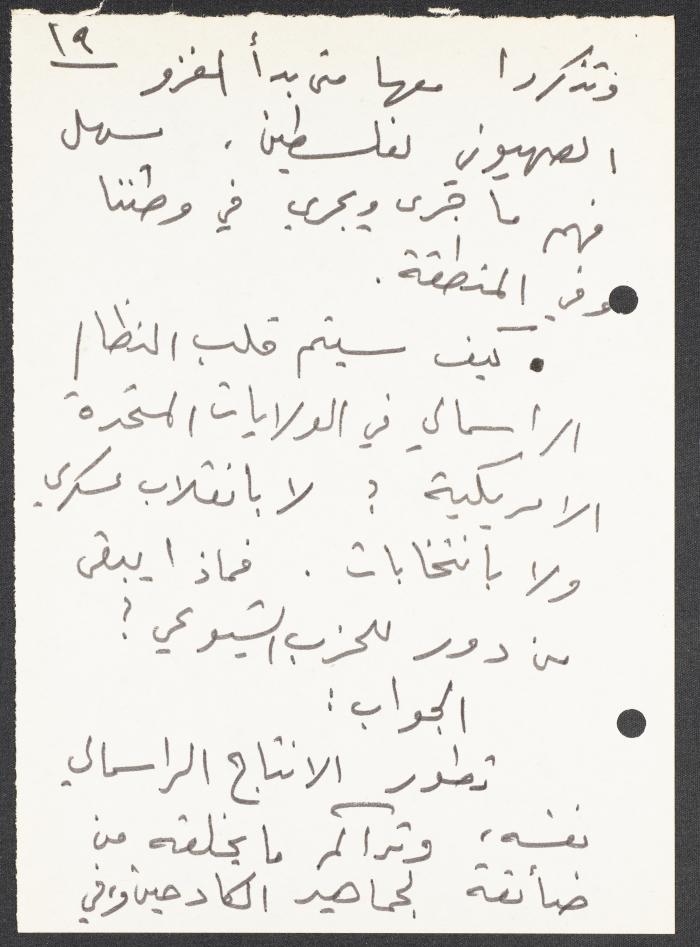 ١٩
وتذكروا معها متى بدأ الغزو
الصهيوني لفلسطين، سهل
فهم ما جرى ويجري في وطننا
وفي المنطقة.
• كيف سيتم قلب النظام
الراسمالي في الولايات المتحدة
الامريكية ؟ لا بانقلاب عسكري
ولا بانتخابات . فماذا يبقى
من دور للحزب الشيوعي ؟
الجواب :
تطور الانتاج الراسمالي
نفسه، وتراكم ما يخلقه من
ضائقة لجماهير الكادحين وفي